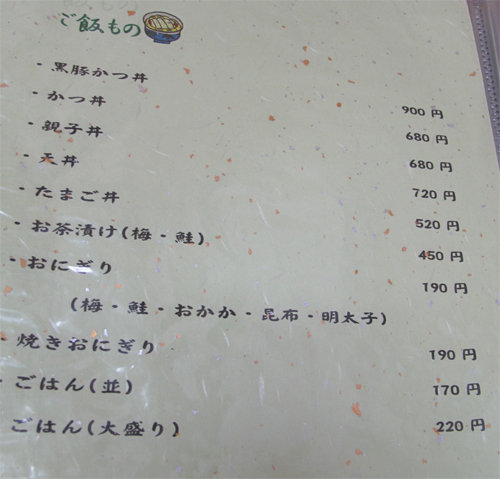 ご飯もの
・黒豚かつ丼 900 円
・かつ丼 680 円
・親子丼 680 円
・天丼 720 円
・たまご丼 520 円
・お茶漬け(梅・鮭) 450 円
・おにぎり 190 円
(梅・鮭・おかか・昆布・明太子)
・焼きおにぎり 190 円
・ごはん(並) 170 円
ごはん(大盛り) 220 円